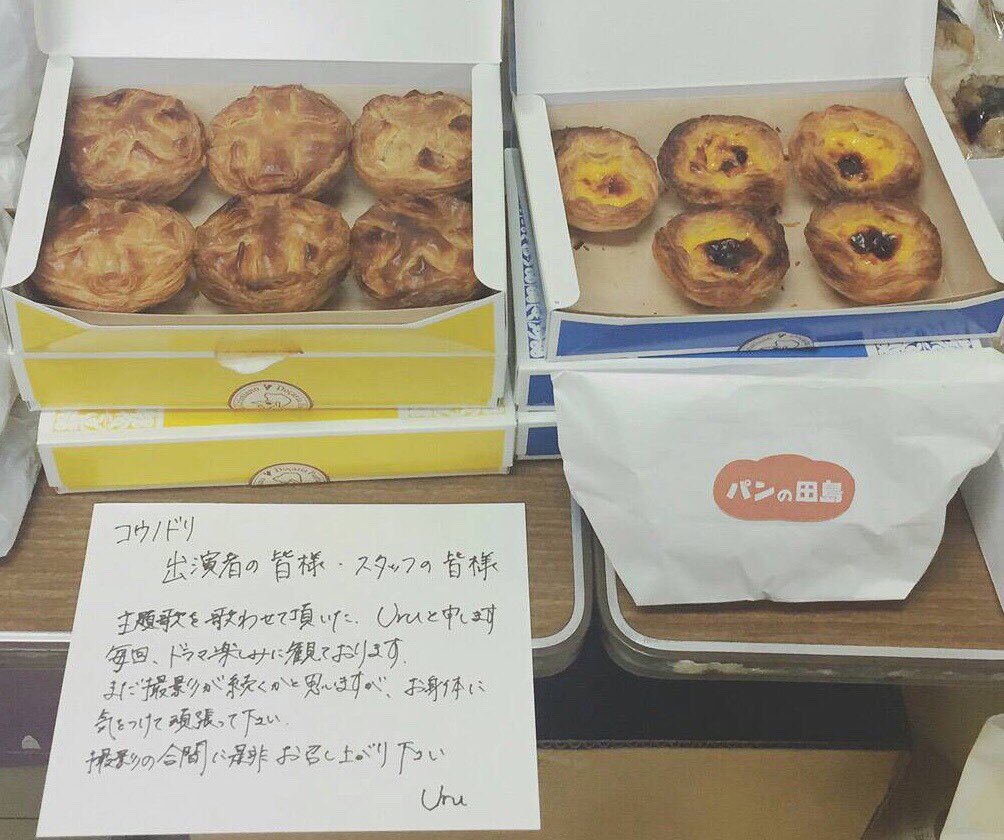 パンの田島
コウノドリ
出演者の皆様・スタッフの皆様
主題歌を歌わせて頂いた、Uruと申します
毎回、ドラマ楽しみに観ております.
まだ撮影が続くかと思いますが、お身体に
気をつけて頑張って下さい.
撮影の合間に是非お召し上がり下さい
Uru